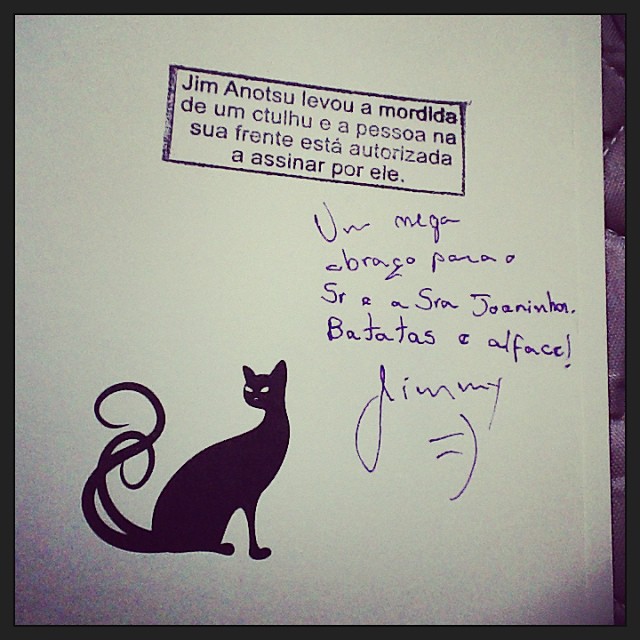 Jim Anotsu levou a mordida
de um ctulhu e a pessoa na
sua frente está autorizada
a assinar por ele.
Um mega
abraço para o
Sr e a Sra Joaninha.
Batatas e alface!
Jimmy
=)